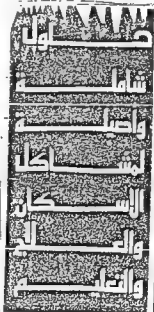 حلول
شاملة
وأصيلة
لمشاكلنا
الاسكان
والعلاج
والتعليم